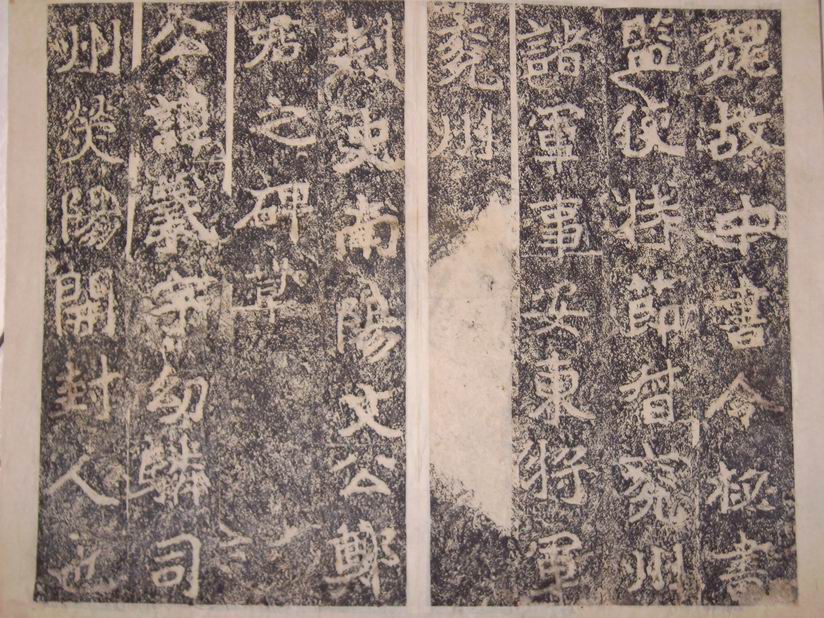 魏故中書令秘書
監使持節督兗州
諸軍事安東將軍
兗州
刺史南陽文公鄭
君之碑草
公諱羲字幼驎司
州滎陽開封人也